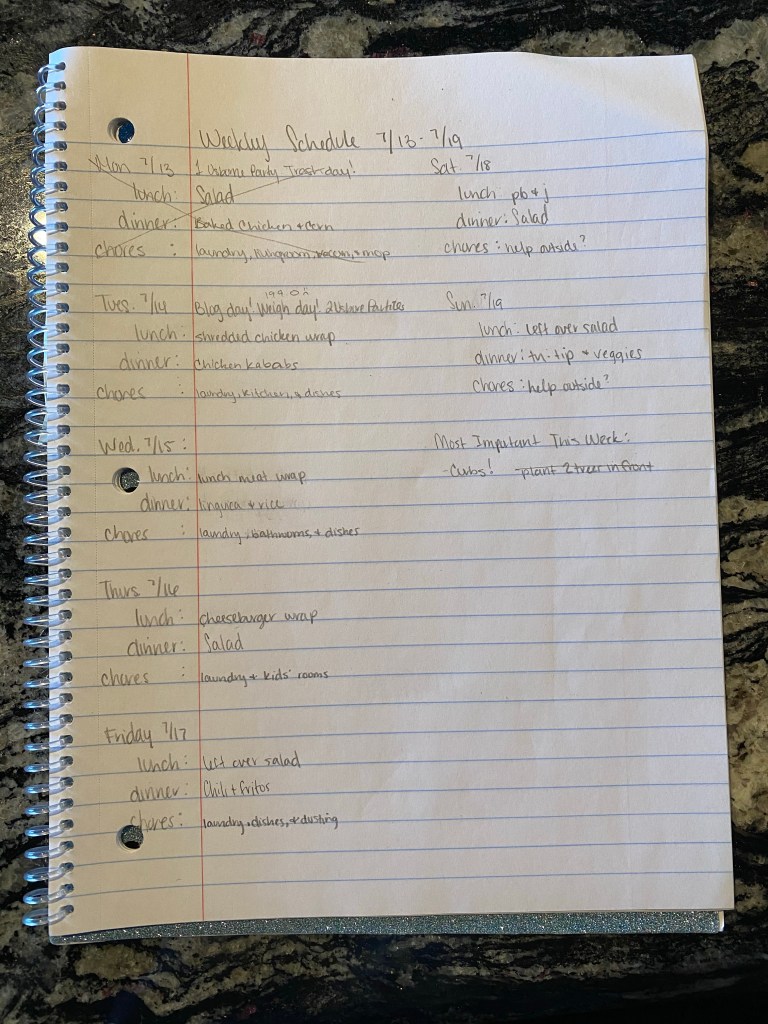 Weekly Schedule 7/13 - 7/19
Mon 7/13 1 Usborne Party Trash day!
lunch: Salad
dinner: Baked Chicken + Corn
chores : laundry, livingroom, vacuum, + mop
Tues. 7/14 Blog day! Weigh day! 2 Usborne Parties
199.0
lunch: shredded chicken wrap
dinner: chicken kababs
chores : laundry, kitchen, + dishes
Wed. 7/15:
lunch: lunch meat wrap
dinner: linguica + rice
chores : laundry, bathrooms, + dishes
Thurs 7/16
lunch: cheeseburger wrap
dinner: Salad
chores : laundry + kids' rooms
Friday 7/17
lunch: left over salad
dinner: Chili + fritos
chores: laundry, dishes, + dusting
Sat. 7/18
lunch pb + j
dinner: Salad
chores : help outside?
Sun. 7/19
lunch: left over salad
dinner: tri-tip + veggies
chores : help outside?
Most Important This Week:
- Cubs! - plant 2 trees in front